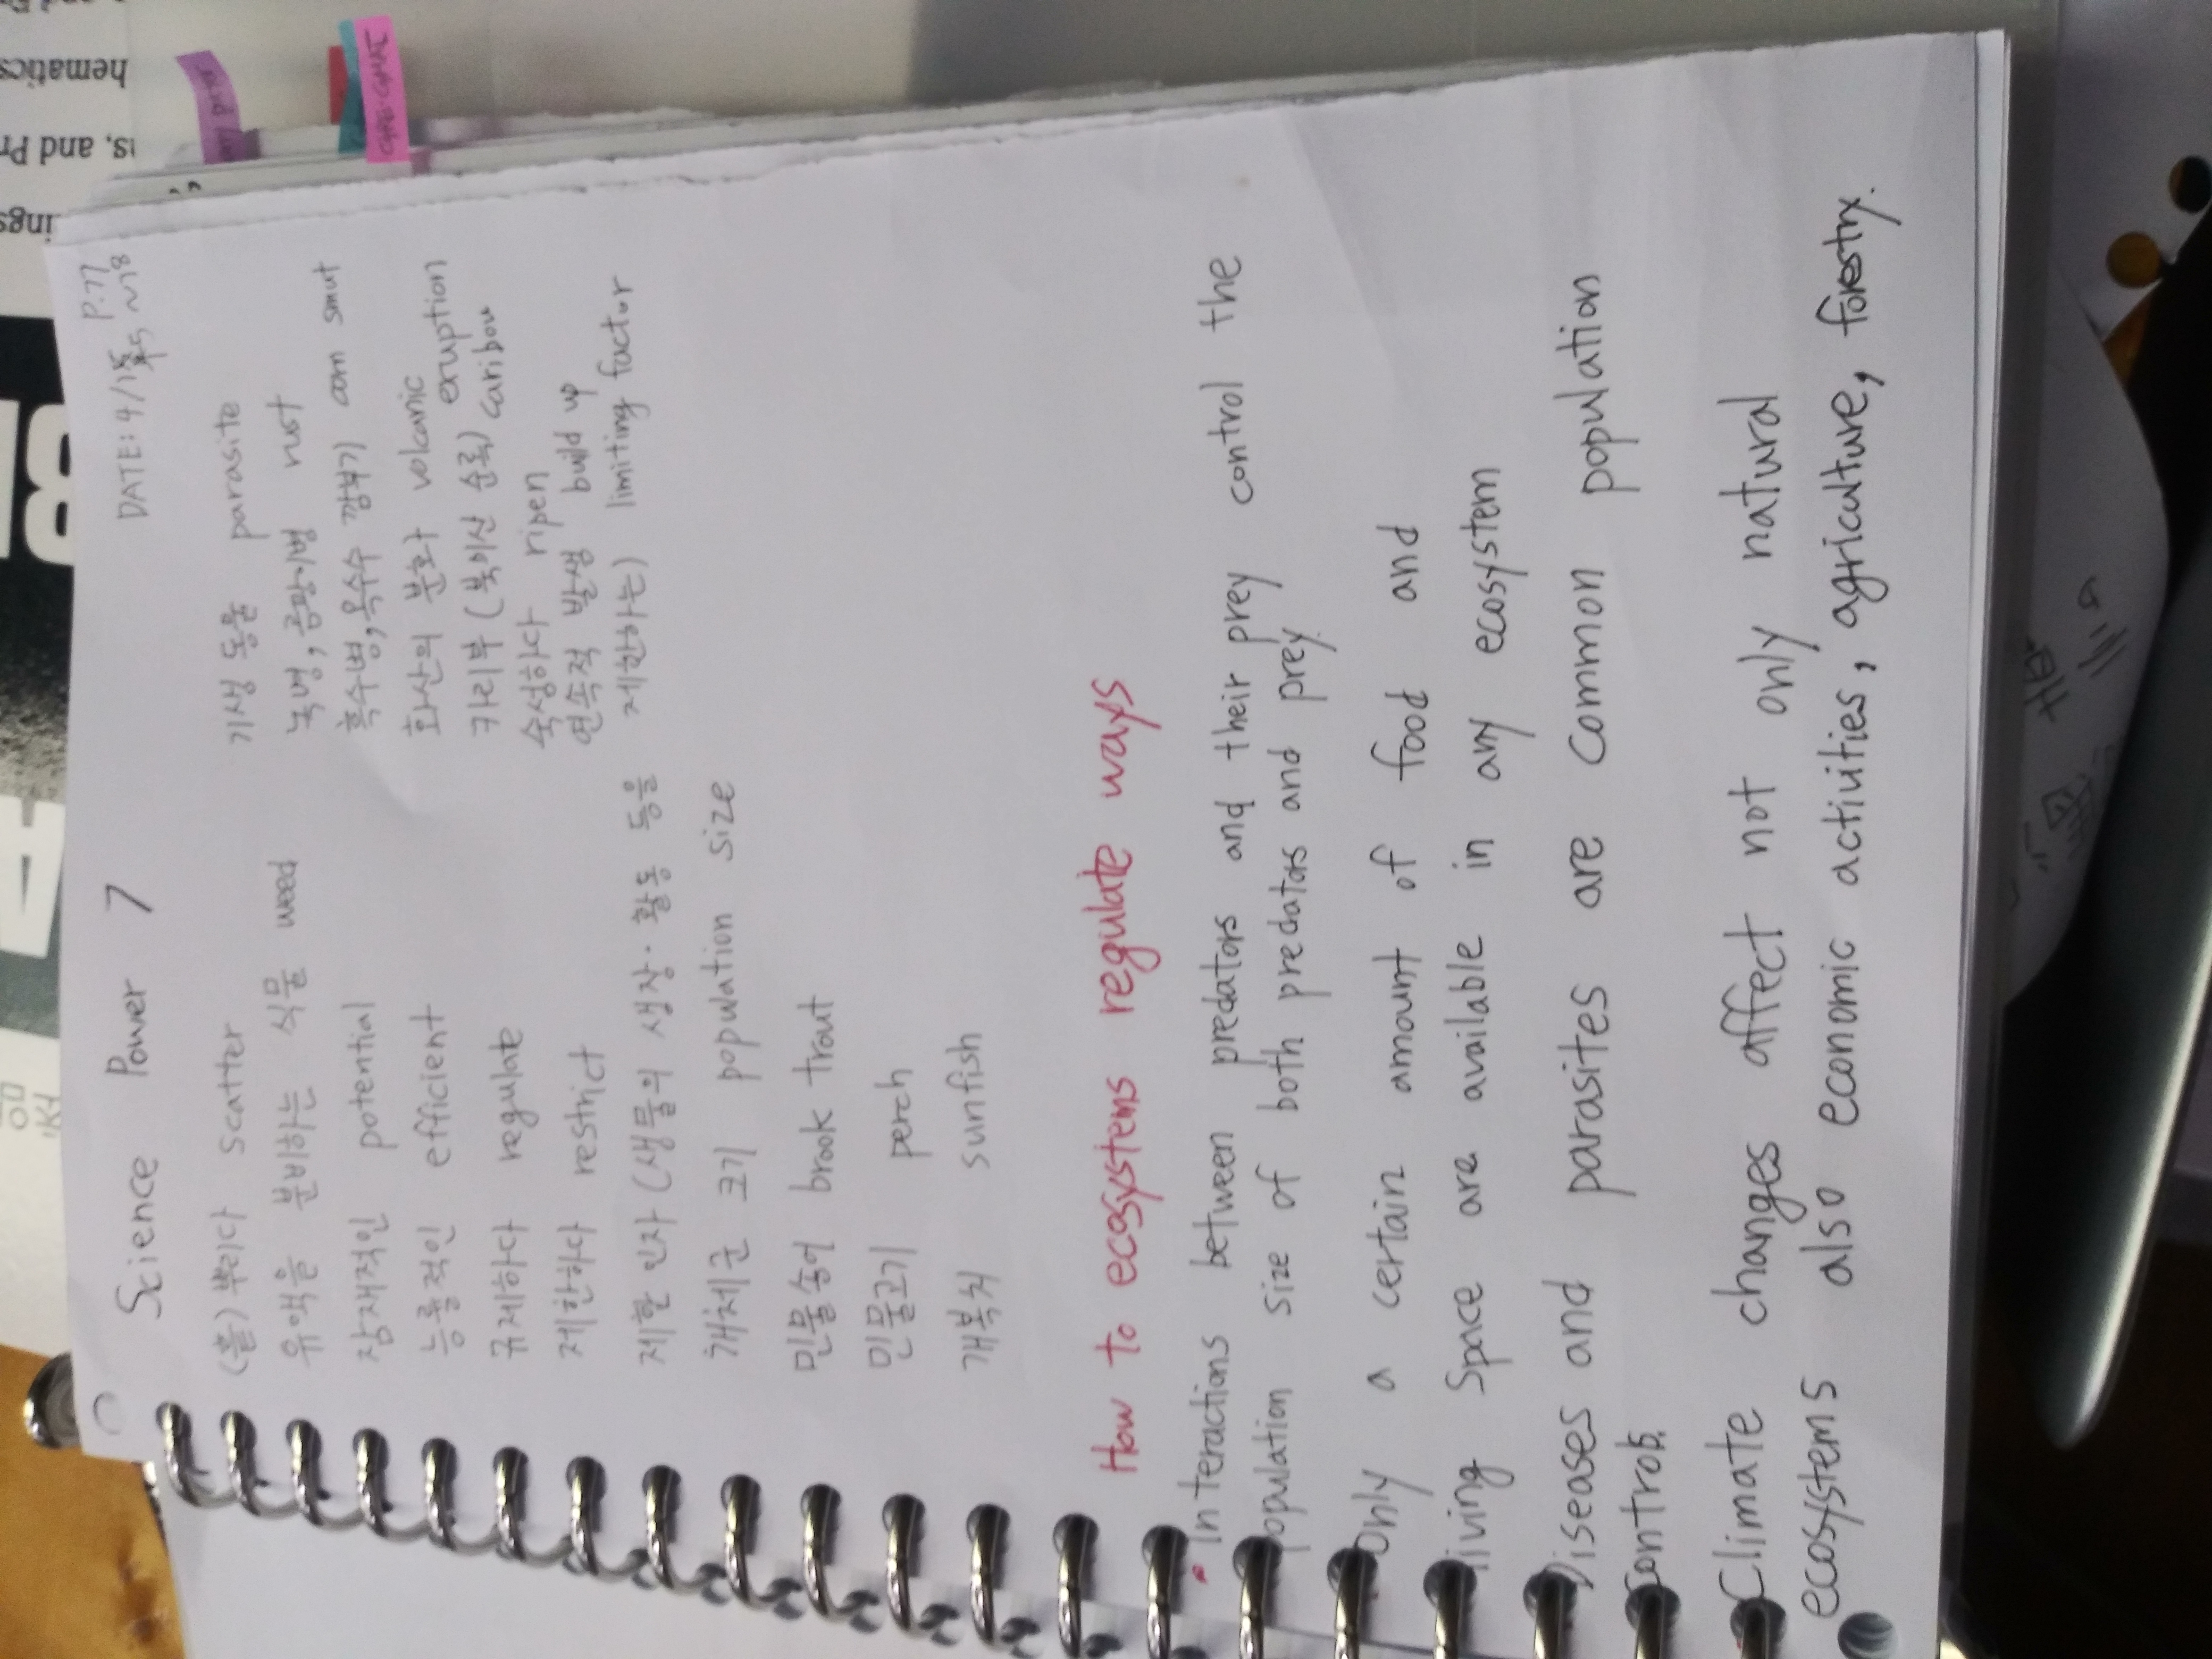 Science Power 7
DATE: 4/15 P.77
~78
(흩)뿌리다 scatter
유액을 분비하는 식물 weed
잠재적인 potential
능률적인 efficient
규제하다 regulate
제한하다 restrict
제한 인자 (생물의 생장·활동 등을
개체군 크기 population size
민물송어 brook trout
민물고기 perch
개복치 sunfish
기생 동물 parasite
녹병, 곰팡이병 rust
흑수병, 옥수수 깜부기) corn smut
화산의 분화 volcanic
eruption
카리부 (북미산 순록) caribou
숙성하다 ripen
연속적 발생 build up
제한하는) limiting factor
How to ecosystems regulate ways
• Interactions between predators and their prey control the
population size of both predators and prey.
Only a certain amount of food and
living space are available in any ecosystem
Diseases and parasites are common population
controls.
Climate changes affect not only natural
ecosystems also economic activities, agriculture, forestry.
hematics
ıs, and Pr
ings